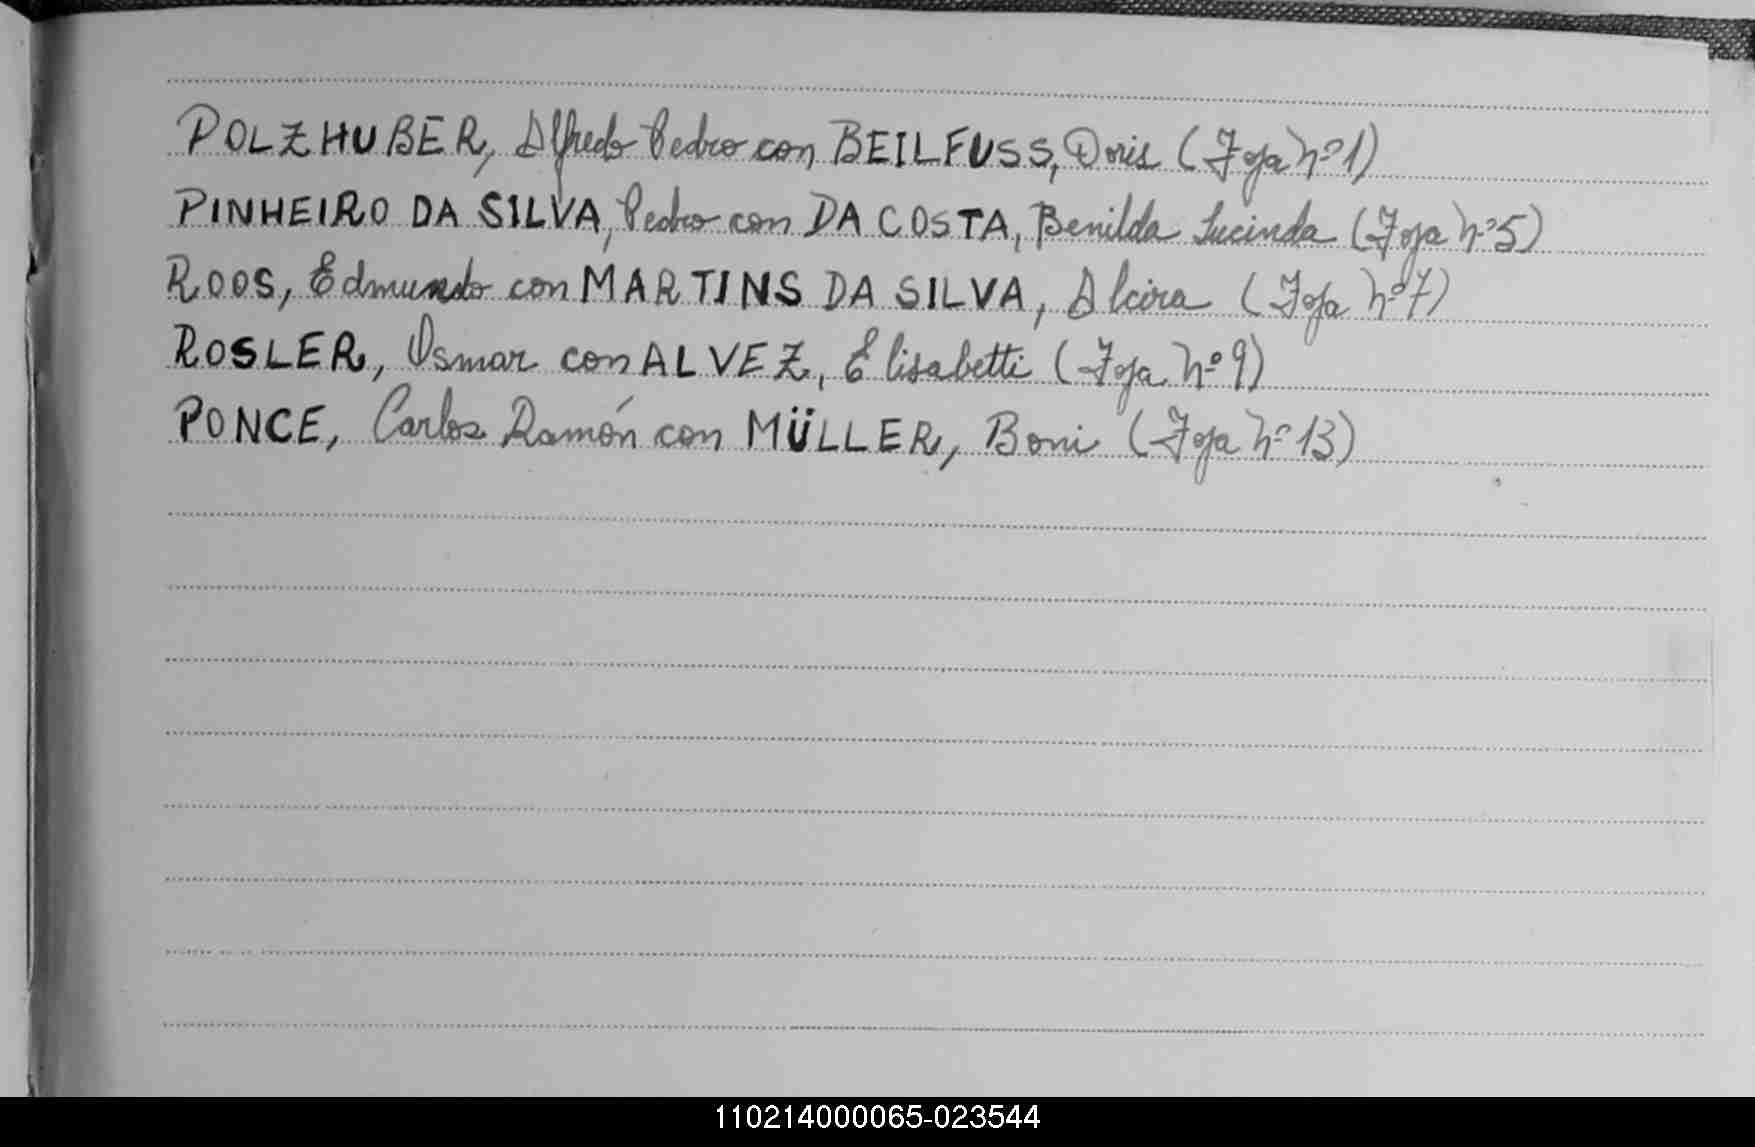 POLZHUBER, Alfredo Pedro con BEILFUSS, Doris (Foja nº 1)
PINHEIRO DA SILVA, Pedro con DA COSTA, Benilda Lucinda (Foja nº 5)
ROOS, Edmundo con MARTINS DA SILVA, Alcira (Foja nº 7)
ROSLER, Osmar con ALVEZ, Elisabetti (Foja nº 9)
PONCE, Carlos Ramón con MÜLLER, Boni (Foja nº 13)
110214000065-023544